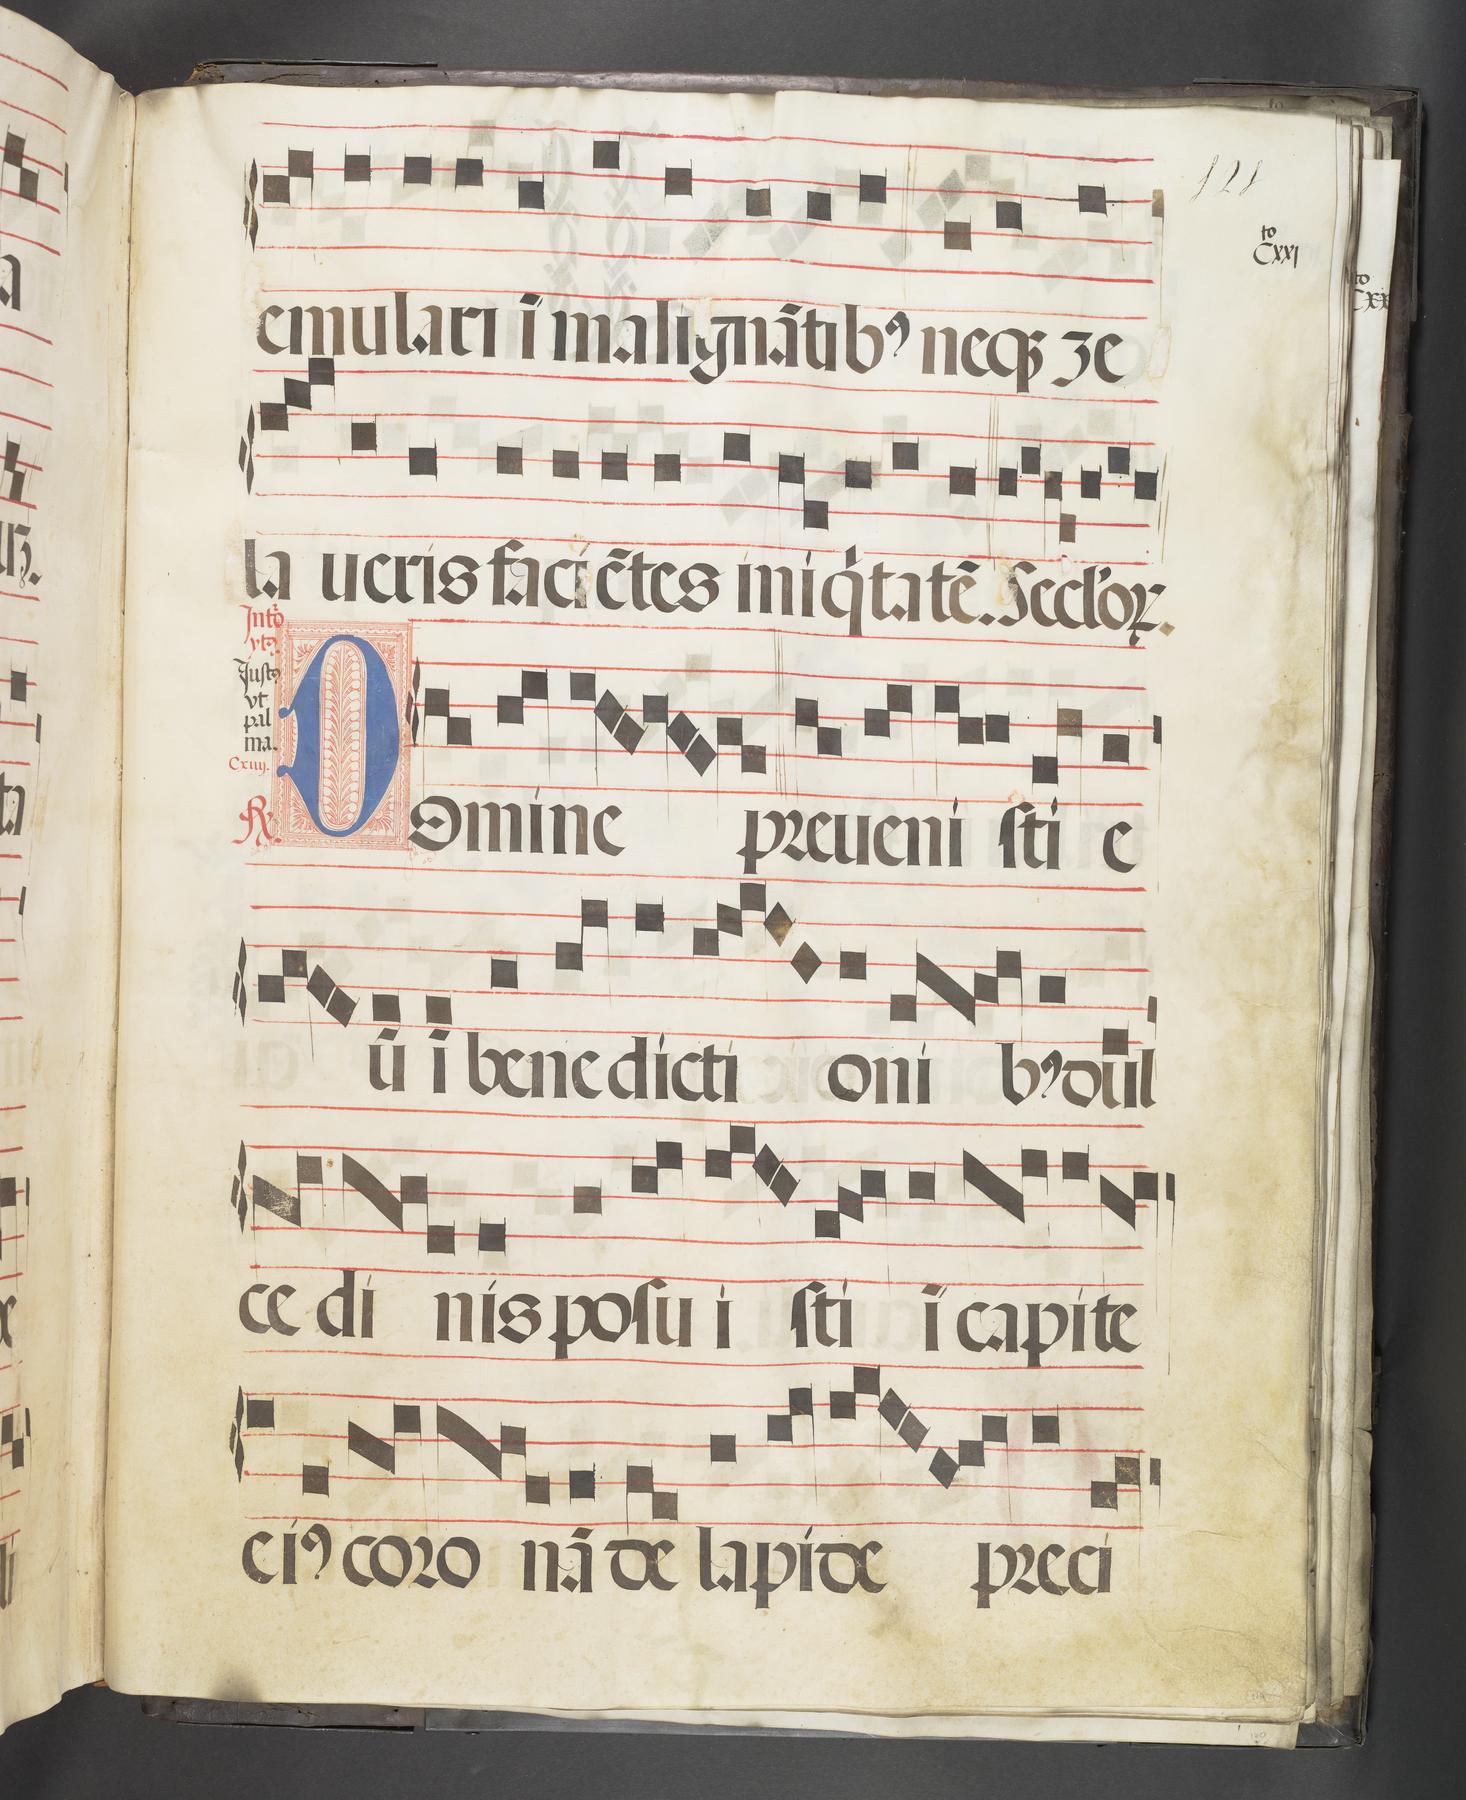 121
to
Cxxj
emulari ī malignātibꝰ neqꝫ ze
la ueris faciētes iniq̇tatē. Seclꝰoꝝ.
Introytꝰ
Justꝰ
vt
pal
ma.
Cxiiij.
℞.
Domine preueni sti e
ū ī benedicti oni bꝰ dul
ce di nis posu i sti ī capite
eiꝰ coro nā de lapide preci